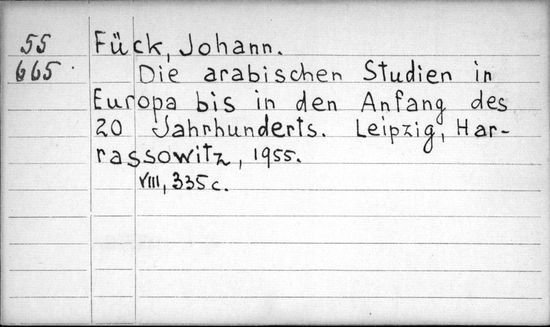 55 Fück, Johann.
665 Die arabischen Studien in
Europa bis in den Anfang des
20 Jahrhunderts. Leipzig, Har-
rassowitz, 1955.
VIII, 335 c.